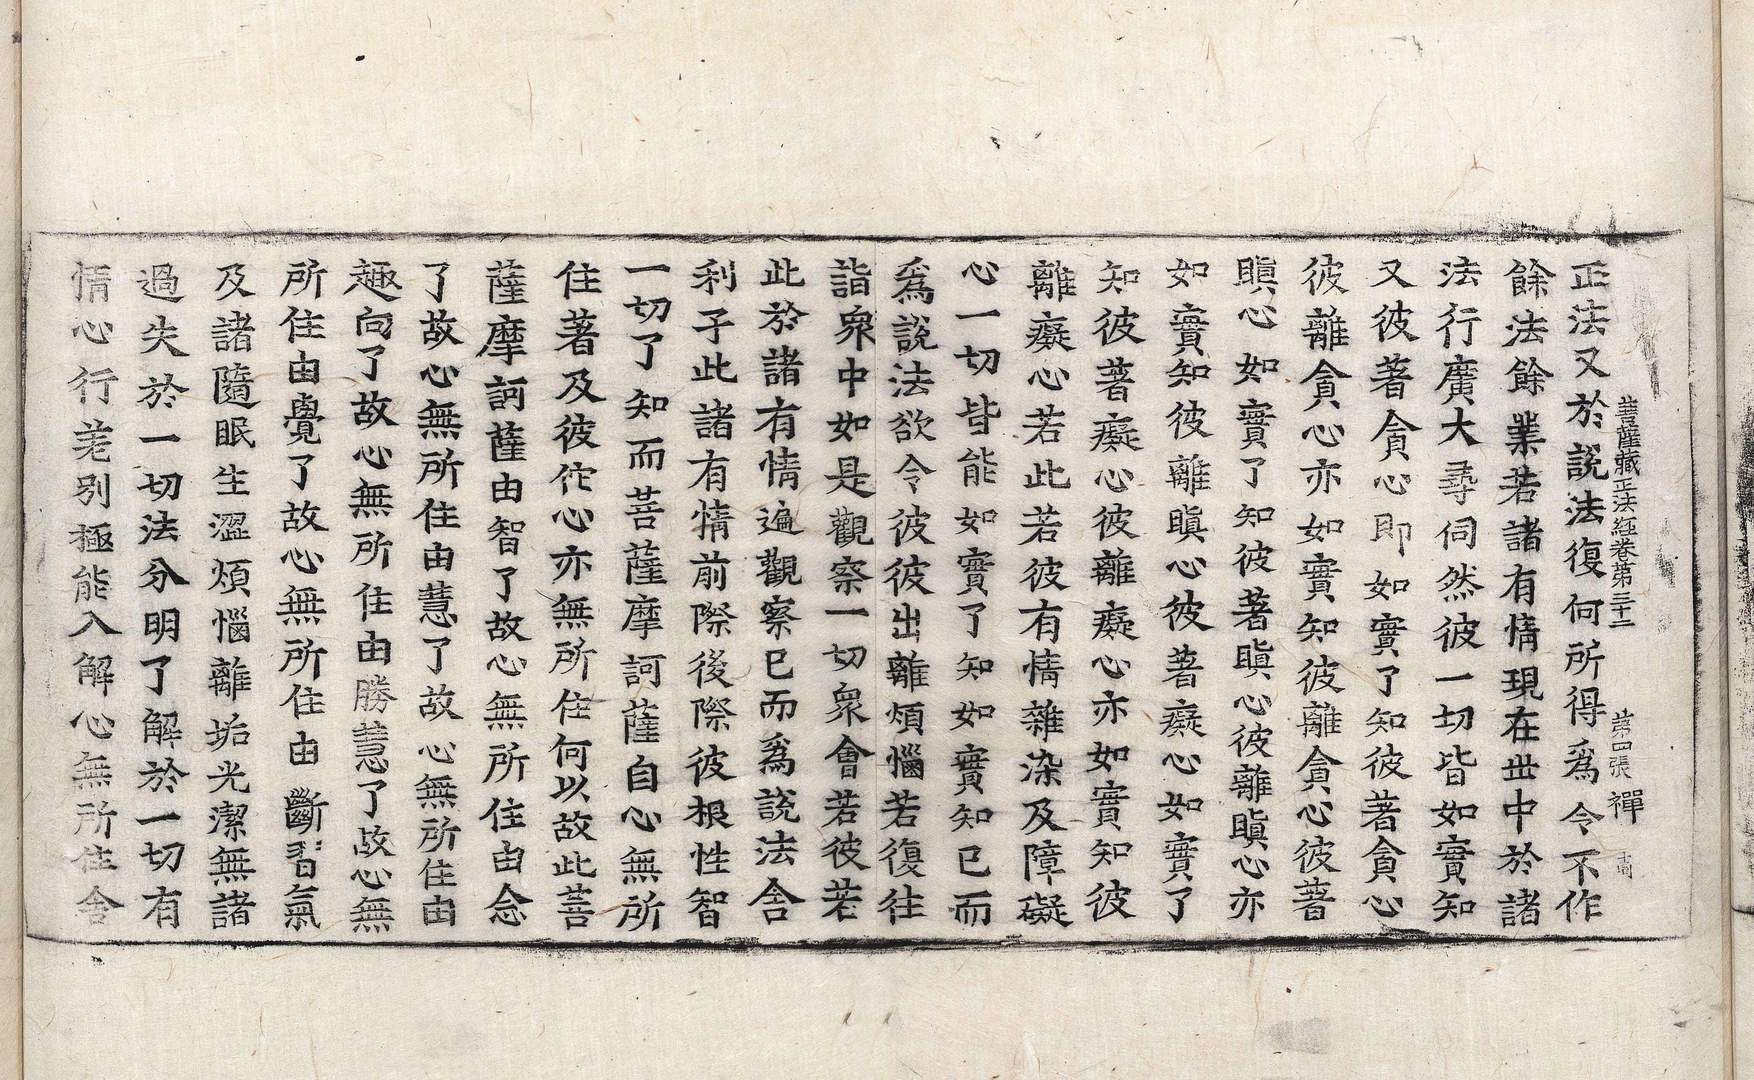 菩薩藏正法經卷第三十二 第四張 禪
正法又於說法復何所得爲令不作
餘法餘業若諸有情現在世中於諸
法行廣大尋伺然彼一切皆如實知
又彼著貪心即如實了知彼著貪心
彼離貪心亦如實知彼離貪心彼著
瞋心如實了知彼著瞋心彼離瞋心亦
如實知彼離瞋心彼著癡心如實了
知彼著癡心彼離癡心亦如實知彼
離癡心若此若彼有情雜染及障礙
心一切皆能如實了知如實知已而
爲說法欲令彼彼出離煩惱若復往
詣衆中如是觀察一切衆會若彼若
此於諸有情遍觀察已而爲說法舍
利子此諸有情前際後際彼根性智
一切了知而菩薩摩訶薩自心無所
住著及彼佗心亦無所住何以故此菩
薩摩訶薩由智了故心無所住由念
了故心無所住由慧了故心無所住由
趣向了故心無所住由勝慧了故心無
所住由覺了故心無所住由斷習氣
及諸隨眠生澀煩惱離垢光潔無諸
過失於一切法分明了解於一切有
情心行差別極能入解心無所住舍